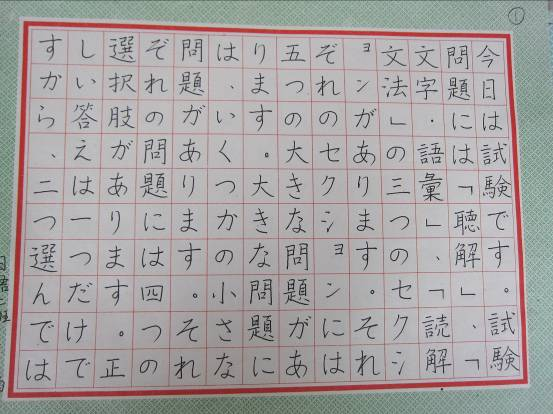 ①
今日は試験です。試験
問題には「聴解」、「
文字・語彙」、「読解
文法」の三つのセクシ
ョンがあります。それ
ぞれのセクションには
五つの大きな問題があ
ります。大きな問題に
は、いくつかの小さな
問題があります。それ
ぞれの問題には四つの
選択肢があります。正
しい答えは一つだけで
すから、二つ選んでは